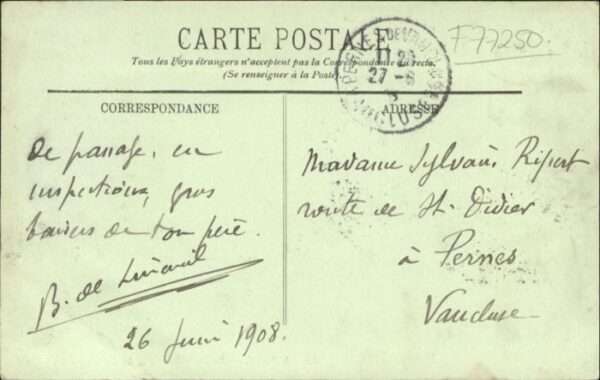 CARTE POSTALE
F77250.
Tous les Pays étrangers n'acceptent pas la Correspondance au recto.
(Se renseigner à la Poste)
CORRESPONDANCE
ADRESSE
De passage, en
inspections, gros
baisers de ton père.
B. de
26 Juin 1908.
Madame Sylvain Ripert
route de St. Didier
à Pernes
Vaucluse
PERNES
VAUCLUSE
27 - 6